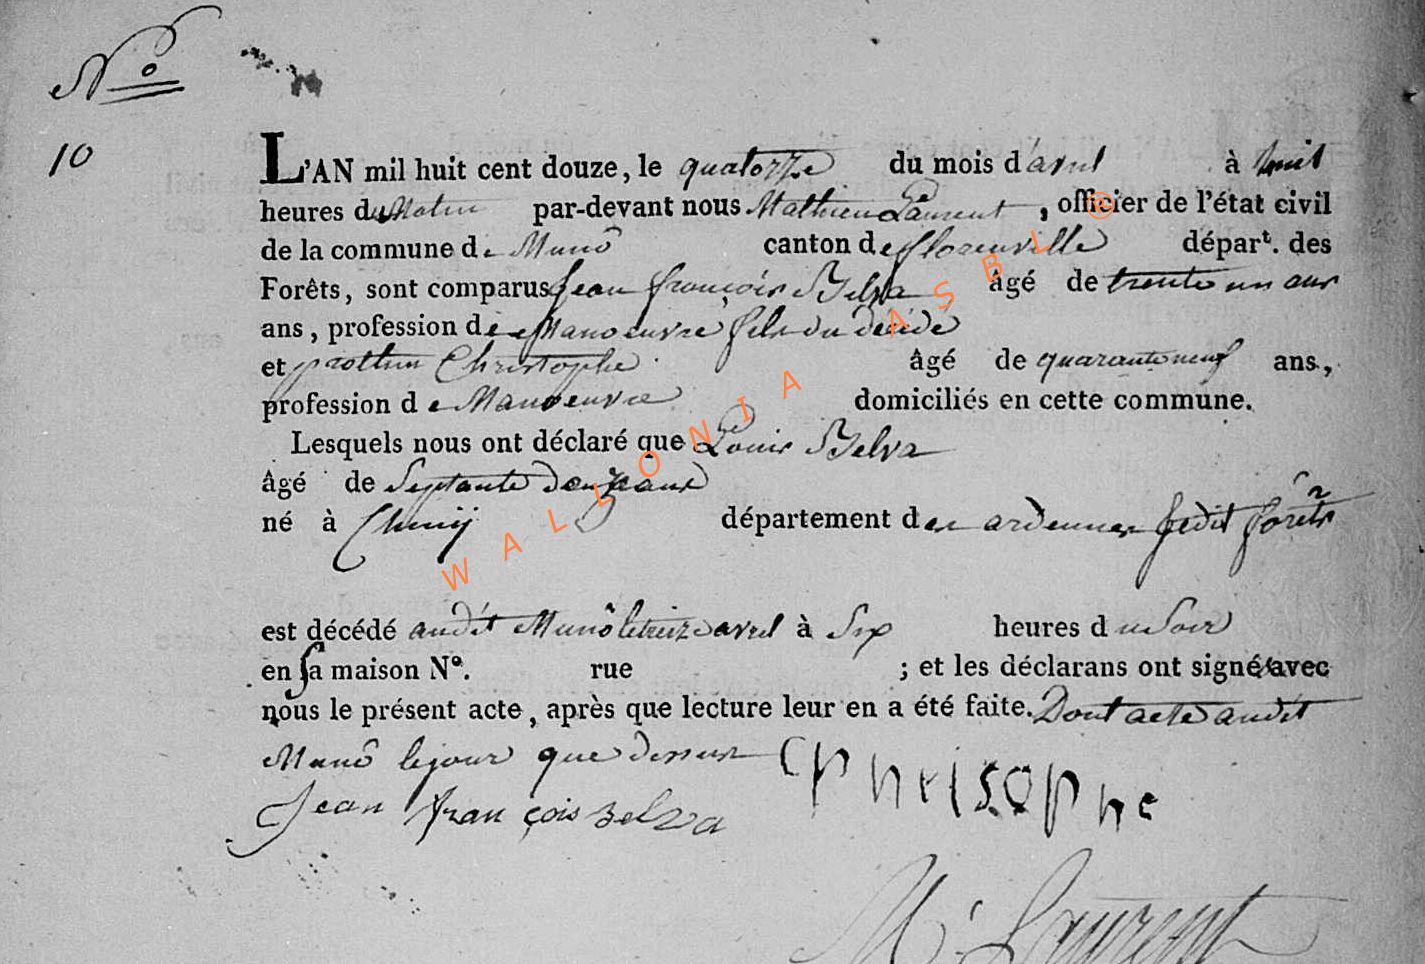 No
10
L'AN mil huit cent douze, le quatorze du mois d'avril à huit
heures du Matin par-devant nous Mathieu Laurent, officier de l'état civil
de la commune de Munô canton de florenville départ. des
Forêts, sont comparus Jean françois Belva âgé de trente un ans
ans, profession de Manoeuvre fils du décédé
et Christophe âgé de quarante neuf ans,
profession de Manoeuvre domiciliés en cette commune.
Lesquels nous ont déclaré que Louis Belva
âgé de Septante deux ans
né à Chiny département des ardennes forêts
est décédé audit Munô le treize avril à Six heures du Soir
en Sa maison No. rue ; et les déclarans ont signé avec
nous le présent acte, après que lecture leur en a été faite. Dont acte audit
Munô le jour que dessus Chrisophe
Jean françois Belva
M. Laurent
WALLONIA ASBL ®